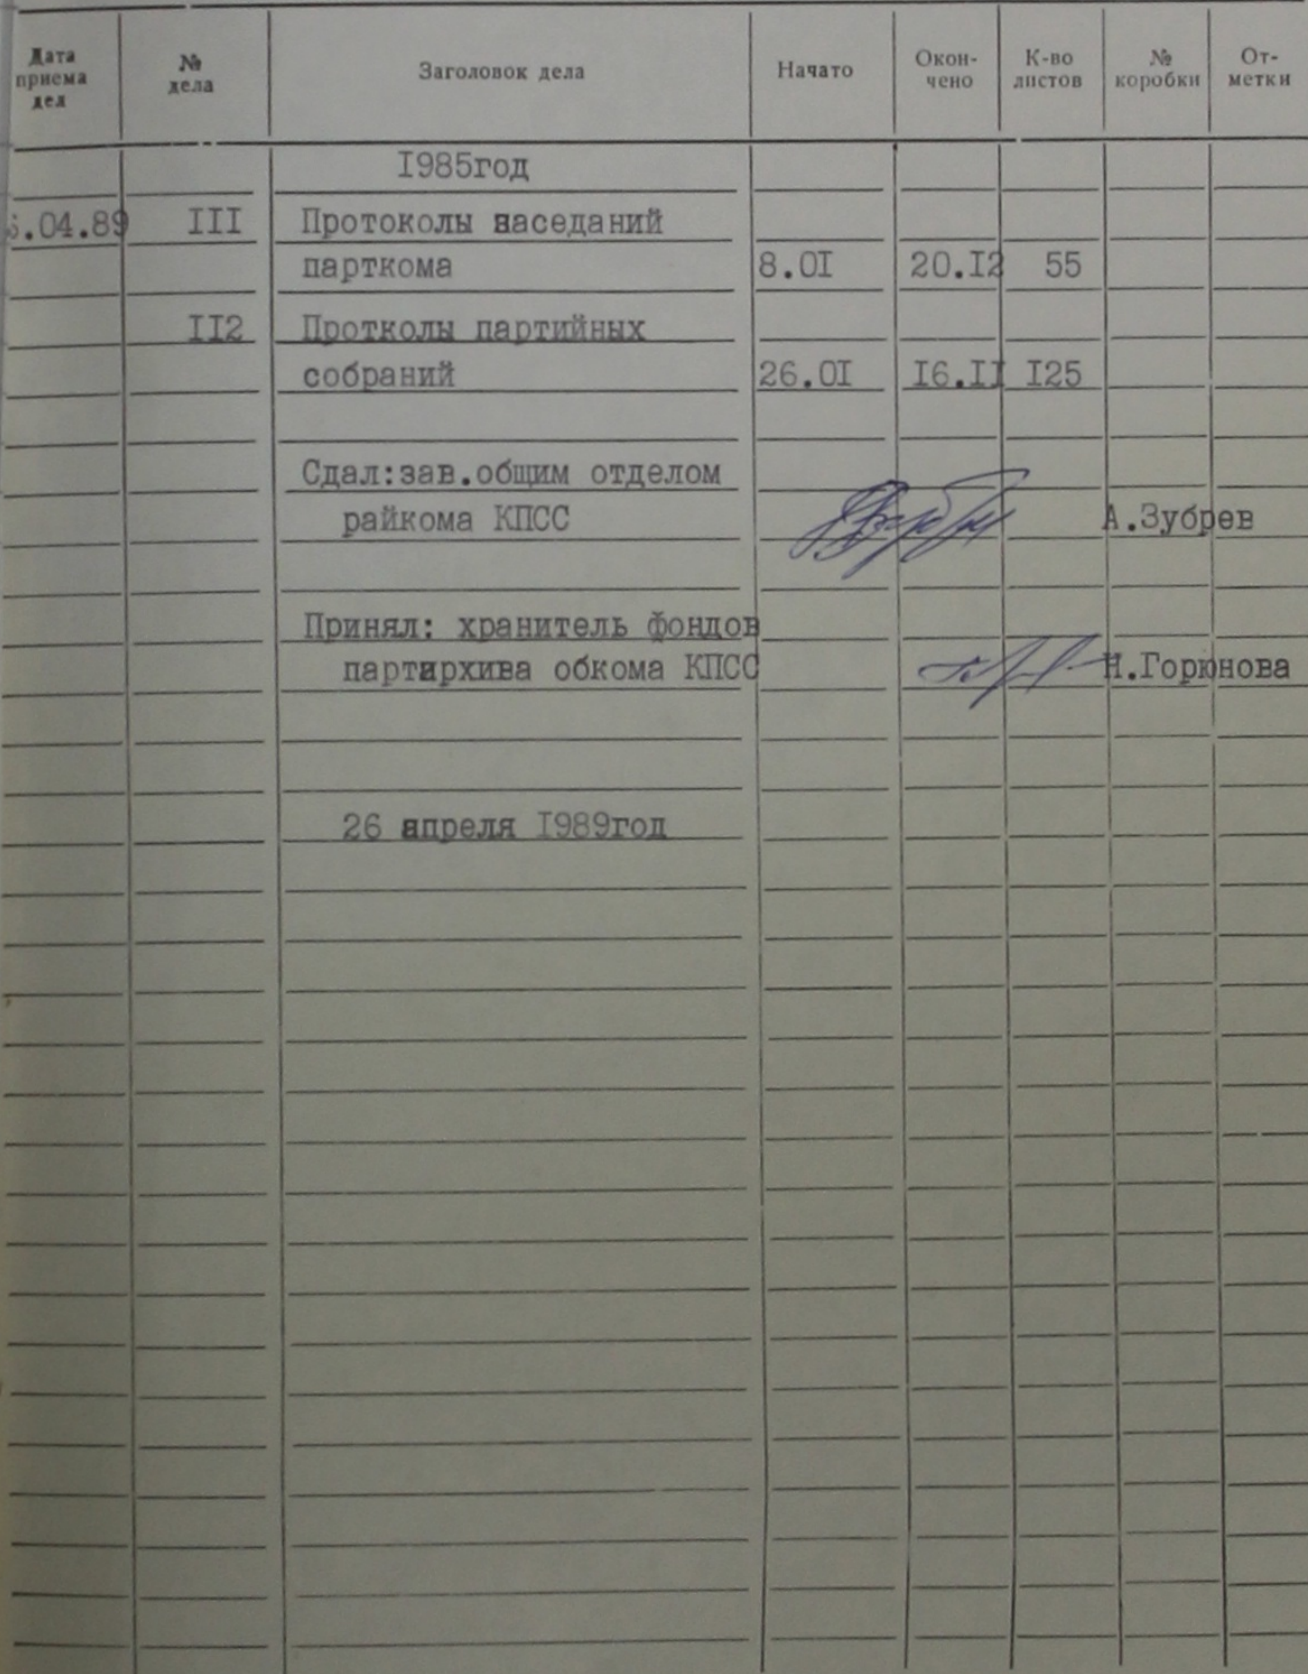 Дата приема дел № дела Заголовок дела Начато Окон-чено К-во листов № коробки От-метки
1985год
.04.89 111 Протоколы заседаний
парткома 8.01 20.12 55
112 Протколы партийных
собраний 26.01 16.11 125
Сдал:зав.общим отделом
райкома КПСС А.Зубрев
Принял: хранитель фондов
партархива обкома КПСС Н.Горюнова
26 апреля 1989год